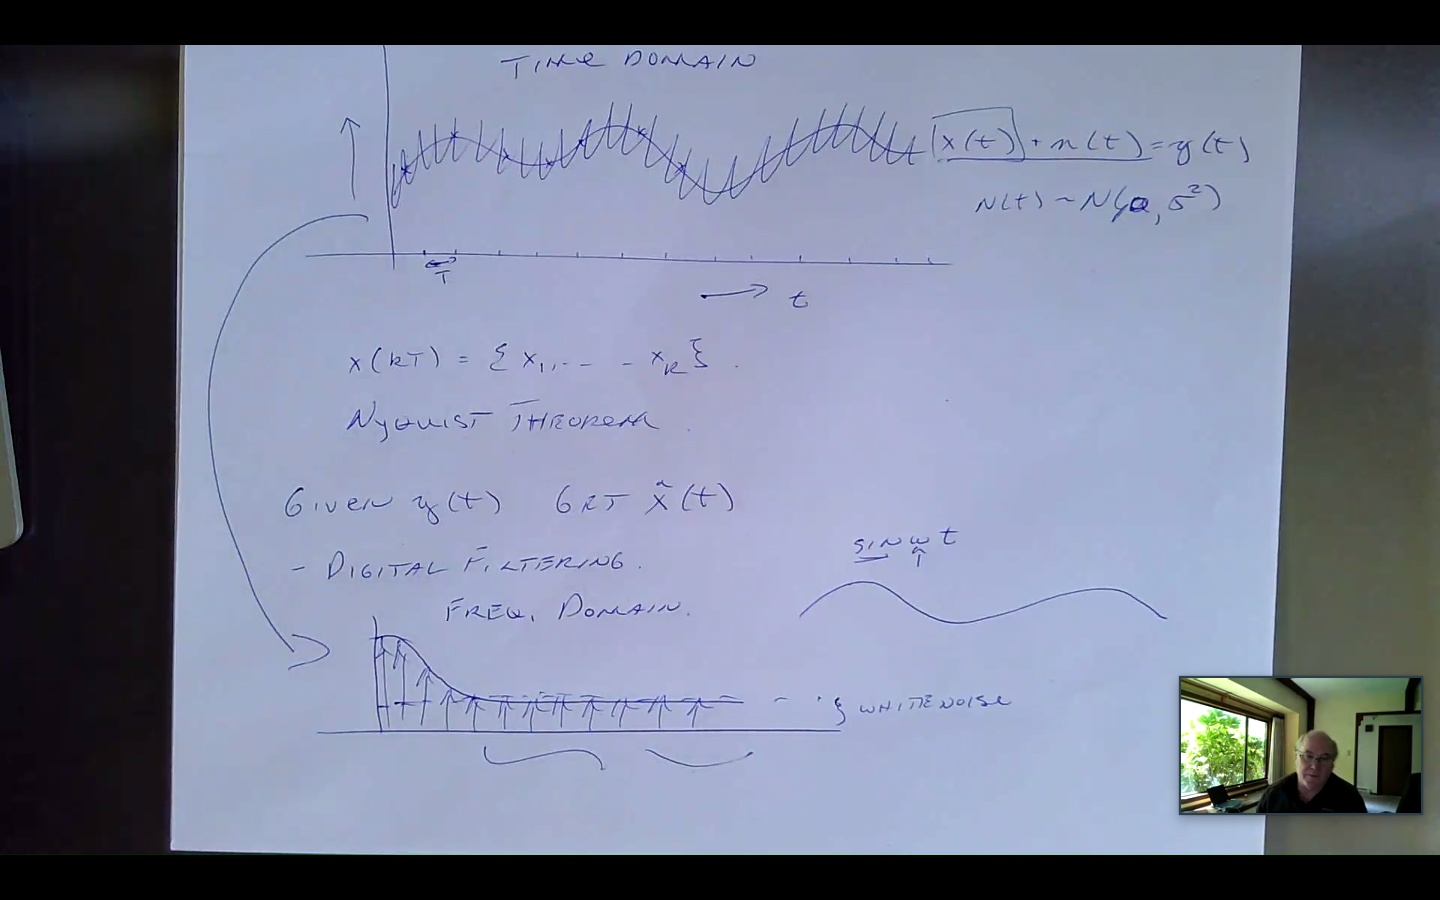 TIME DOMAIN
x(t) + n(t) = y(t)
N(t) ~ N(0, σ²)
T
t
x(kT) = { x₁, ... - x_k }.
NYQUIST THEOREM.
GIVEN y(t) GET x̂(t)
- DIGITAL FILTERING.
SIN ω t
FREQ. DOMAIN.
WHITE NOISE